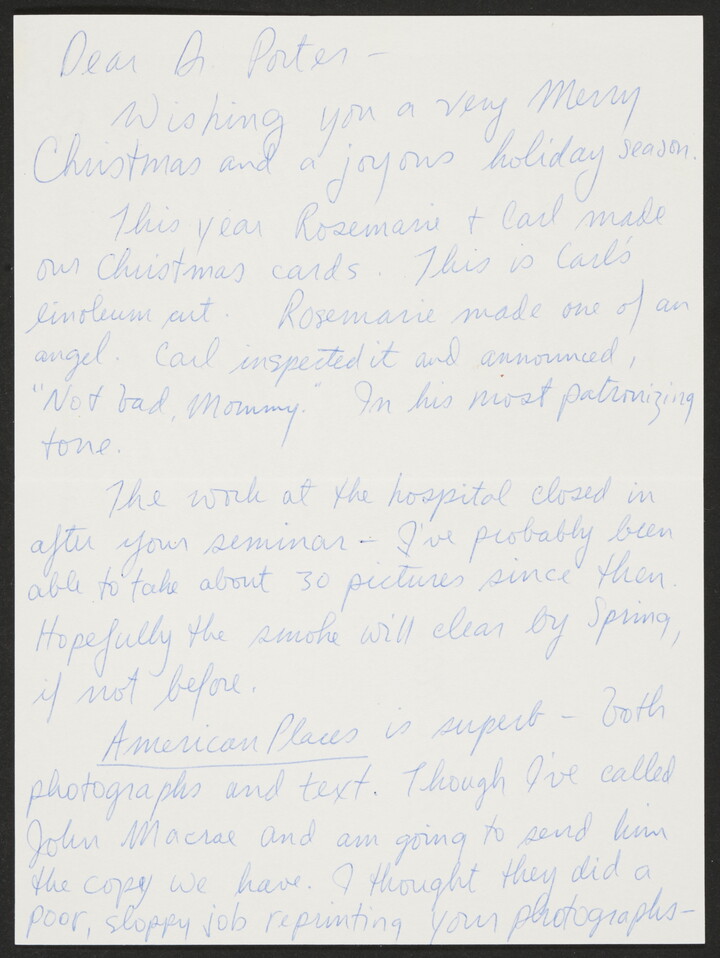 Dear Dr. Porter —
Wishing you a very Merry
Christmas and a joyous holiday season.
This year Rosemarie + Carl made
our Christmas cards. This is Carl's
linoleum cut. Rosemarie made one of an
angel. Carl inspected it and announced,
"Not bad, Mommy." In his most patronizing
tone.
The work at the hospital closed in
after your seminar — I've probably been
able to take about 30 pictures since then.
Hopefully the smoke will clear by Spring,
if not before.
American Places is superb — both
photographs and text. Though I've called
John Macrae and am going to send him
the copy we have. I thought they did a
poor, sloppy job reprinting your photographs —